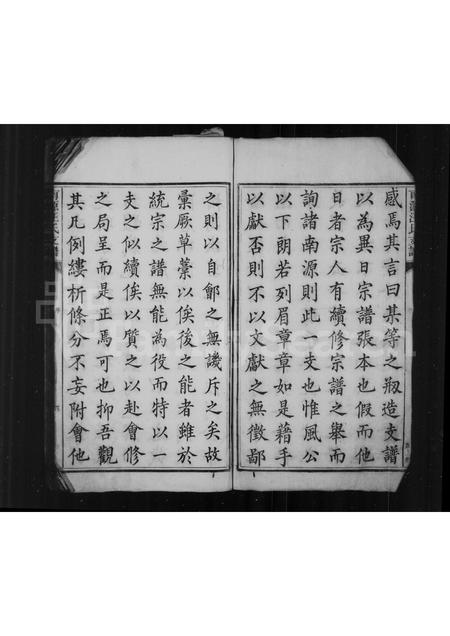 感焉其言曰其等之剏造支譜
以為異日宗譜張本也假而他
日者宗人有續修宗譜之舉而
詢諸南源則此 支也惟風公
以下朗若列眉章章如是藉手
以獻否則不以文獻之無徵鄙
之則以自鄶之無譏斥之矣故
彙厥草藁以俟後之能者雖於
統宗之譜無能為役而特以一
支之似續俟以質之以赴會修
之局呈而是正焉可也抑吾觀
其凡例縷析條分不妄附會他
南源汪氏支譜